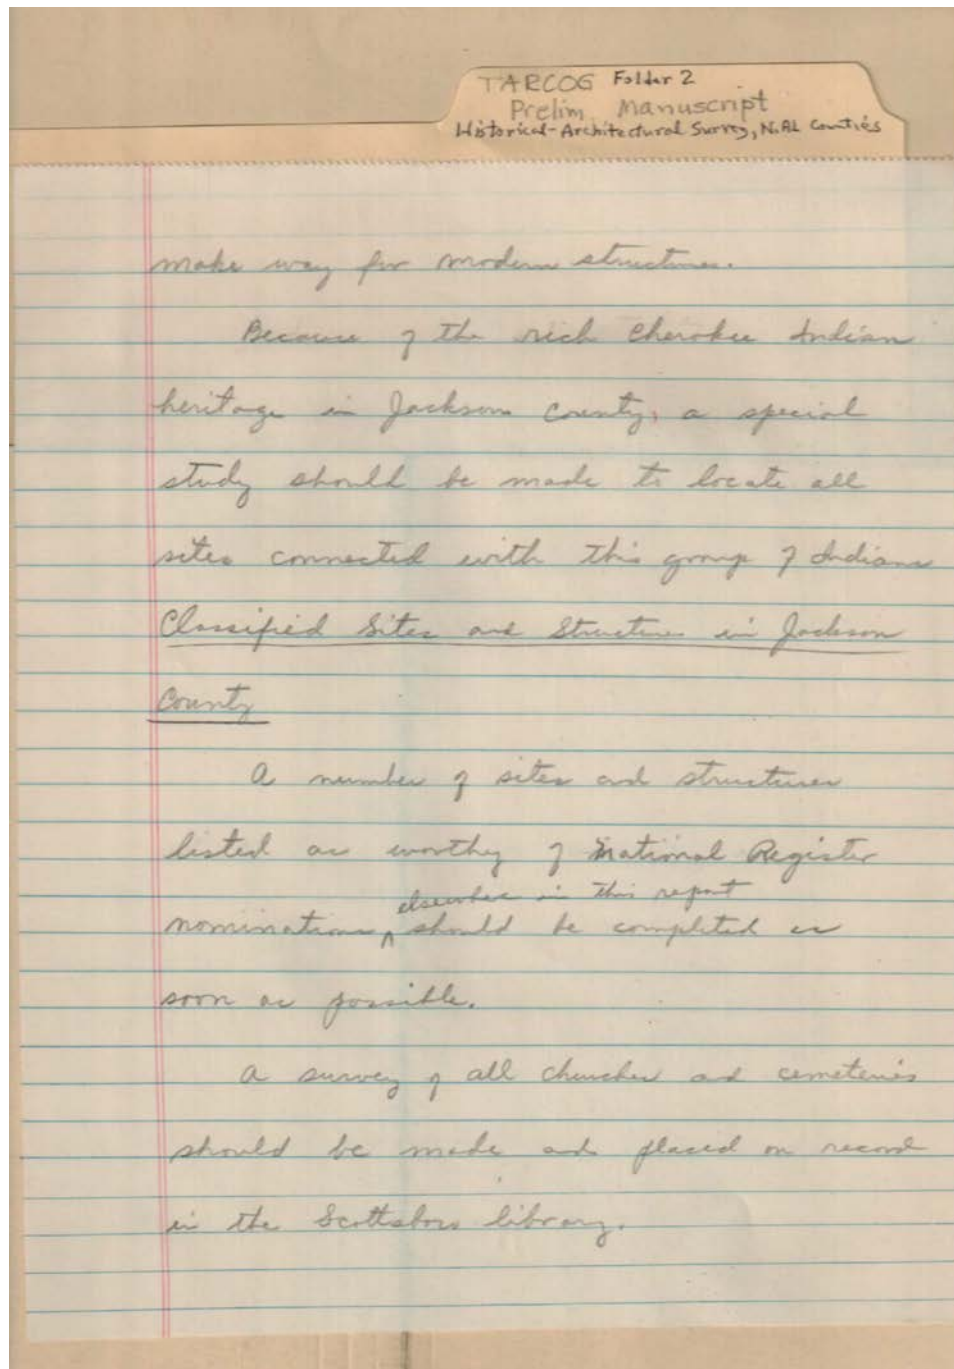 TARCOG Folder 2
Prelim. Manuscript
Historical-Architectural Survey, N.AL Counties
make way for modern structures.
Because of the rich Cherokee Indian
heritage in Jackson County, a special
study should be made to locate all
sites connected with this group of Indians
Classified Sites and Structures in Jackson
County
A number of sites and structures
listed as worthy of National Register
elsewhere in this report
nominations ^ should be completed as
soon as possible.
A survey of all churches and cemeteries
should be made and placed on record
in the Scottsboro library.